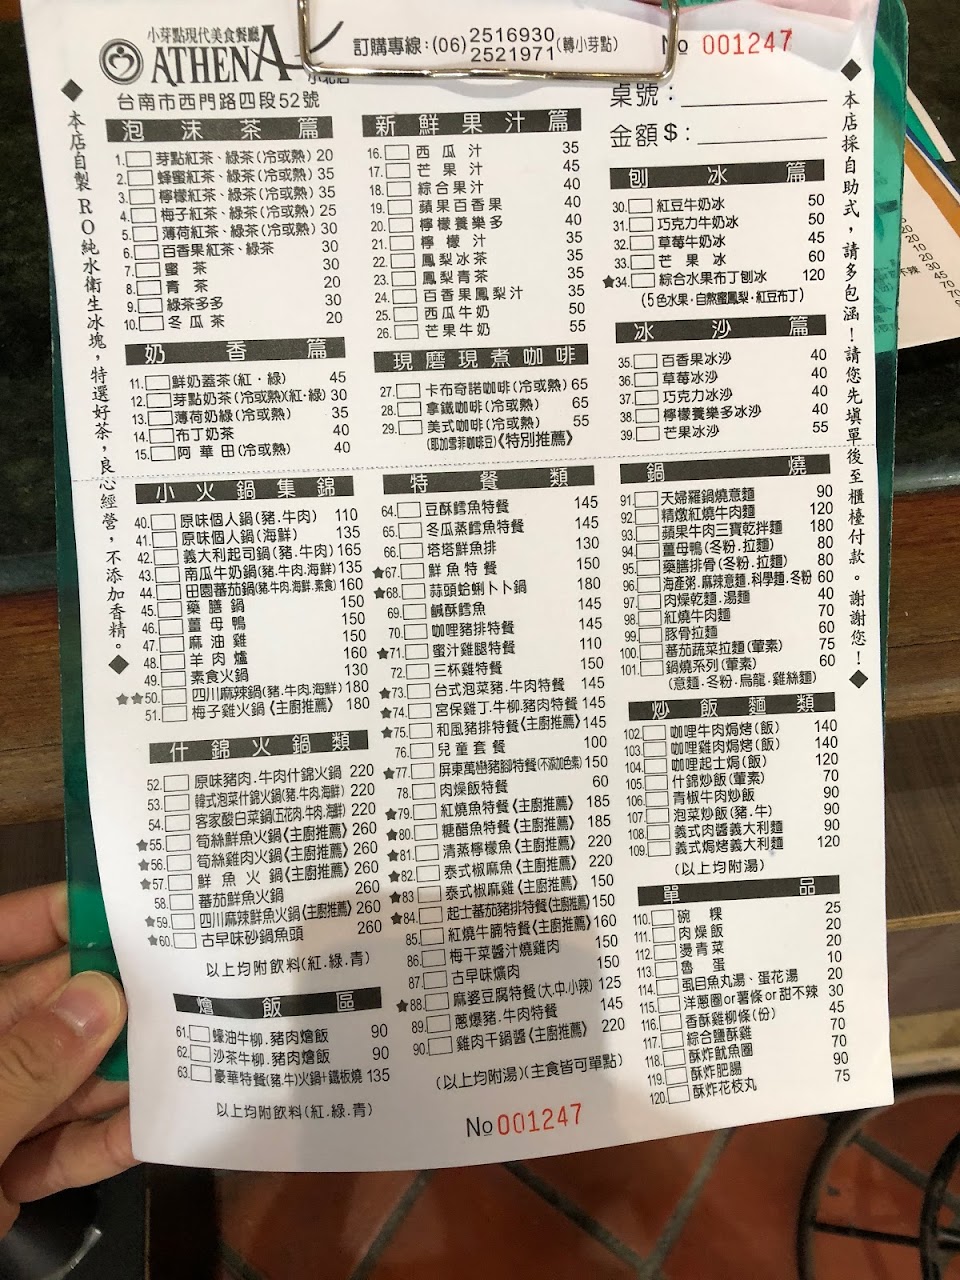 小芽點現代美食餐廳
ATHENA
台南市西門路四段52號
訂購專線:(06) 2516930
2521971 (轉小芽點)
No 001247
桌號:
金額$:
◆本店自製RO純水衛生冰塊,特選好茶,良心經營,不添加香精。◆
◆本店採自助式,請多包涵!請您先填單後至櫃檯付款。謝謝您!◆
泡沫茶篇
1. 芽點紅茶、綠茶(冷或熱) 20
2. 蜂蜜紅茶、綠茶(冷或熱) 35
3. 檸檬紅茶、綠茶(冷或熱) 35
4. 梅子紅茶、綠茶(冷或熱) 25
5. 薄荷紅茶、綠茶(冷或熱) 30
6. 百香果紅茶、綠茶 30
7. 蜜茶 30
8. 青茶 20
9. 綠茶多多 30
10. 冬瓜茶 20
奶香篇
11. 鮮奶蓋茶(紅.綠) 45
12. 芽點奶茶(冷或熱)(紅.綠) 30
13. 薄荷奶綠(冷或熱) 35
14. 布丁奶茶 40
15. 阿華田(冷或熱) 40
新鮮果汁篇
16. 西瓜汁 35
17. 芒果汁 45
18. 綜合果汁 40
19. 蘋果百香果 40
20. 檸檬養樂多 40
21. 檸檬汁 35
22. 鳳梨冰茶 35
23. 鳳梨青茶 35
24. 百香果鳳梨汁 35
25. 西瓜牛奶 50
26. 芒果牛奶 55
現磨現煮咖啡
27. 卡布奇諾咖啡(冷或熱) 65
28. 拿鐵咖啡(冷或熱) 65
29. 美式咖啡(冷或熱) 55
(耶加雪菲咖啡豆)《特別推薦》
刨冰篇
30. 紅豆牛奶冰 50
31. 巧克力牛奶冰 50
32. 草莓牛奶冰 45
33. 芒果冰 60
★34. 綜合水果布丁刨冰 120
(5色水果.自熬蜜鳳梨.紅豆布丁)
冰沙篇
35. 百香果冰沙 40
36. 草莓冰沙 40
37. 巧克力冰沙 40
38. 檸檬養樂多冰沙 40
39. 芒果冰沙 55
小火鍋集錦
40. 原味個人鍋(豬.牛肉) 110
41. 原味個人鍋(海鮮) 135
42. 義大利起司鍋(豬.牛肉) 165
43. 南瓜牛奶鍋(豬.牛肉.海鮮) 135
44. 田園蕃茄鍋(豬.牛肉.海鮮.素食) 160
45. 藥膳鍋 150
46. 薑母鴨 150
47. 麻油雞 150
48. 羊肉爐 160
49. 素食火鍋 130
★★50. 四川麻辣鍋(豬.牛肉.海鮮) 180
51. 梅子雞火鍋《主廚推薦》 180
什錦火鍋類
52. 原味豬肉.牛肉什錦火鍋 220
53. 韓式泡菜什錦火鍋(豬.牛肉.海鮮) 220
54. 客家酸白菜鍋(五花肉.牛肉.海鮮) 220
★55. 筍絲鮮魚火鍋《主廚推薦》 260
★56. 筍絲雞肉火鍋《主廚推薦》 260
★57. 鮮魚火鍋《主廚推薦》 260
58. 蕃茄鮮魚火鍋 260
★59. 四川麻辣鮮魚火鍋《主廚推薦》 260
★60. 古早味砂鍋魚頭 260
以上均附飲料(紅.綠.青)
燴飯區
61. 蠔油牛柳.豬肉燴飯 90
62. 沙茶牛柳.豬肉燴飯 90
63. 豪華特餐(豬.牛)火鍋+鐵板燒 135
以上均附飲料(紅.綠.青)
特餐類
64. 豆酥鱈魚特餐 145
65. 冬瓜蒸鱈魚特餐 145
66. 塔塔鮮魚排 130
★67. 鮮魚特餐 150
★68. 蒜頭蛤蜊卜卜鍋 180
69. 鹹酥鱈魚 150
70. 咖哩豬排特餐 145
★71. 蜜汁雞腿特餐 110
72. 三杯雞特餐 150
★73. 台式泡菜豬.牛肉特餐 145
★74. 宮保雞丁.牛柳.豬肉特餐 145
★75. 和風豬排特餐《主廚推薦》 145
76. 兒童套餐 100
★77. 屏東萬巒豬腳特餐(不添加色素) 150
78. 肉燥飯特餐 60
★79. 紅燒魚特餐《主廚推薦》 185
★80. 糖醋魚特餐《主廚推薦》 185
★81. 清蒸檸檬魚《主廚推薦》 220
★82. 泰式椒麻魚《主廚推薦》 220
★83. 泰式椒麻雞《主廚推薦》 150
★84. 起士蕃茄豬排特餐《主廚推薦》 150
85. 紅燒牛腩特餐《主廚推薦》 160
86. 梅干菜醬汁燒雞肉 150
87. 古早味爌肉 150
★88. 麻婆豆腐特餐(大.中.小辣) 125
89. 蔥爆豬.牛肉特餐 145
90. 雞肉干鍋醬《主廚推薦》 220
(以上均附湯)(主食皆可單點)
鍋燒
91. 天婦羅鍋燒意麵 90
92. 精燉紅燒牛肉麵 120
93. 蘋果牛肉三寶乾拌麵 180
94. 薑母鴨(冬粉.拉麵) 80
95. 藥膳排骨(冬粉.拉麵) 80
96. 海產粥.麻辣意麵.科學麵.冬粉 60
97. 肉燥乾麵.湯麵 40
98. 紅燒牛肉麵 70
99. 豚骨拉麵 60
100. 蕃茄蔬菜拉麵(葷素) 75
101. 鍋燒系列(葷素) 60
(意麵.冬粉.烏龍.雞絲麵)
炒飯麵類
102. 咖哩牛肉焗烤(飯) 140
103. 咖哩雞肉焗烤(飯) 140
104. 咖哩起士焗(飯) 120
105. 什錦炒飯(葷素) 70
106. 青椒牛肉炒飯 90
107. 泡菜炒飯(豬.牛) 90
108. 義式肉醬義大利麵 90
109. 義式焗烤義大利麵 120
(以上均附湯)
單品
110. 碗粿 25
111. 肉燥飯 20
112. 燙青菜 20
113. 魯蛋 10
114. 虱目魚丸湯、蛋花湯 20
115. 洋蔥圈or薯條or甜不辣 30
116. 香酥雞柳條(份) 45
117. 綜合鹽酥雞 70
118. 酥炸魷魚圈 70
119. 酥炸肥腸 90
120. 酥炸花枝丸 75
No 001247